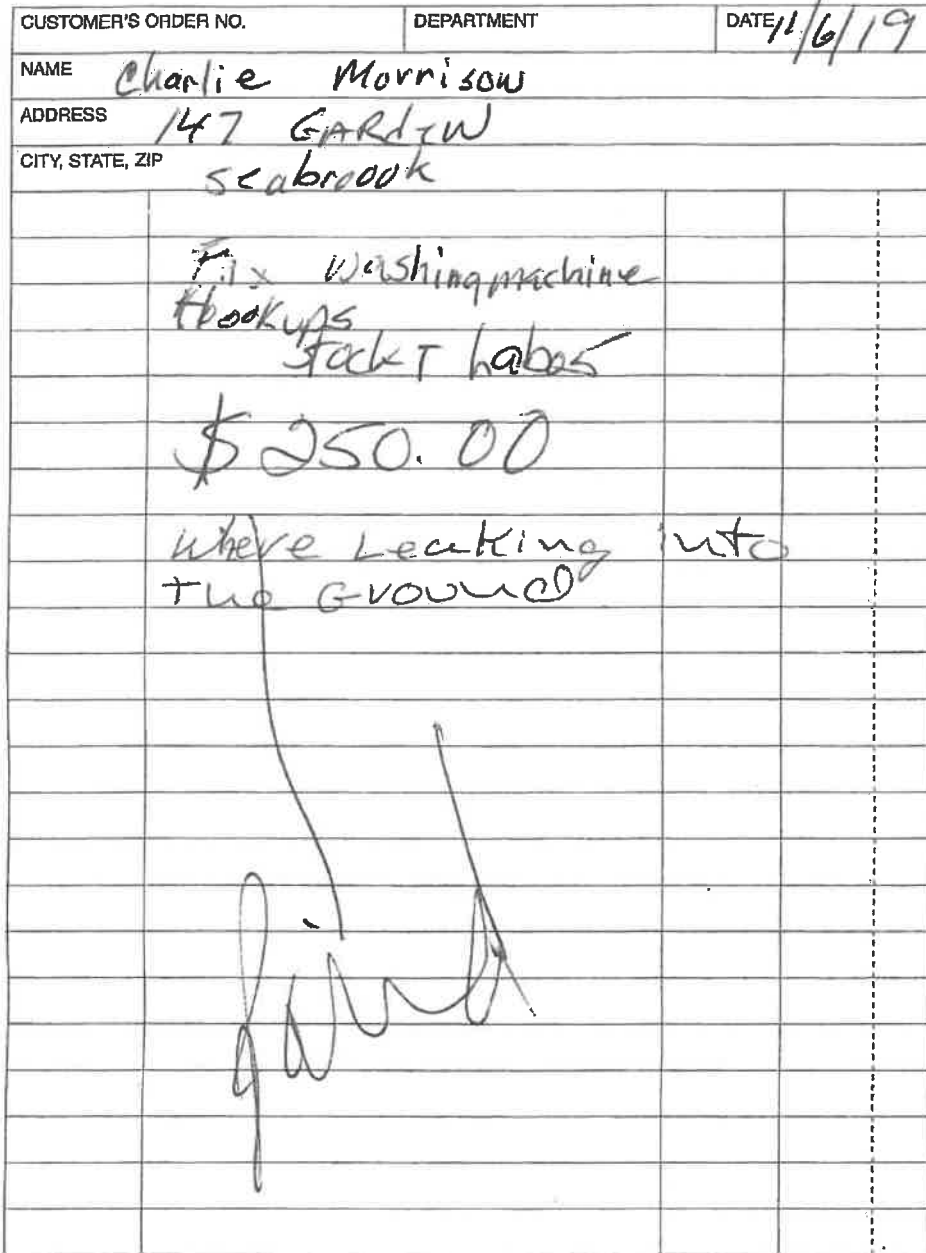 CUSTOMER'S ORDER NO. DEPARTMENT DATE 11/6/19
NAME Charlie Morrison
ADDRESS 147 GARDEN
CITY, STATE, ZIP Seabroook
Fix Washingmachine
Hookups
Stock T Labor
$250.00
where Leaking into
The Ground
Paid